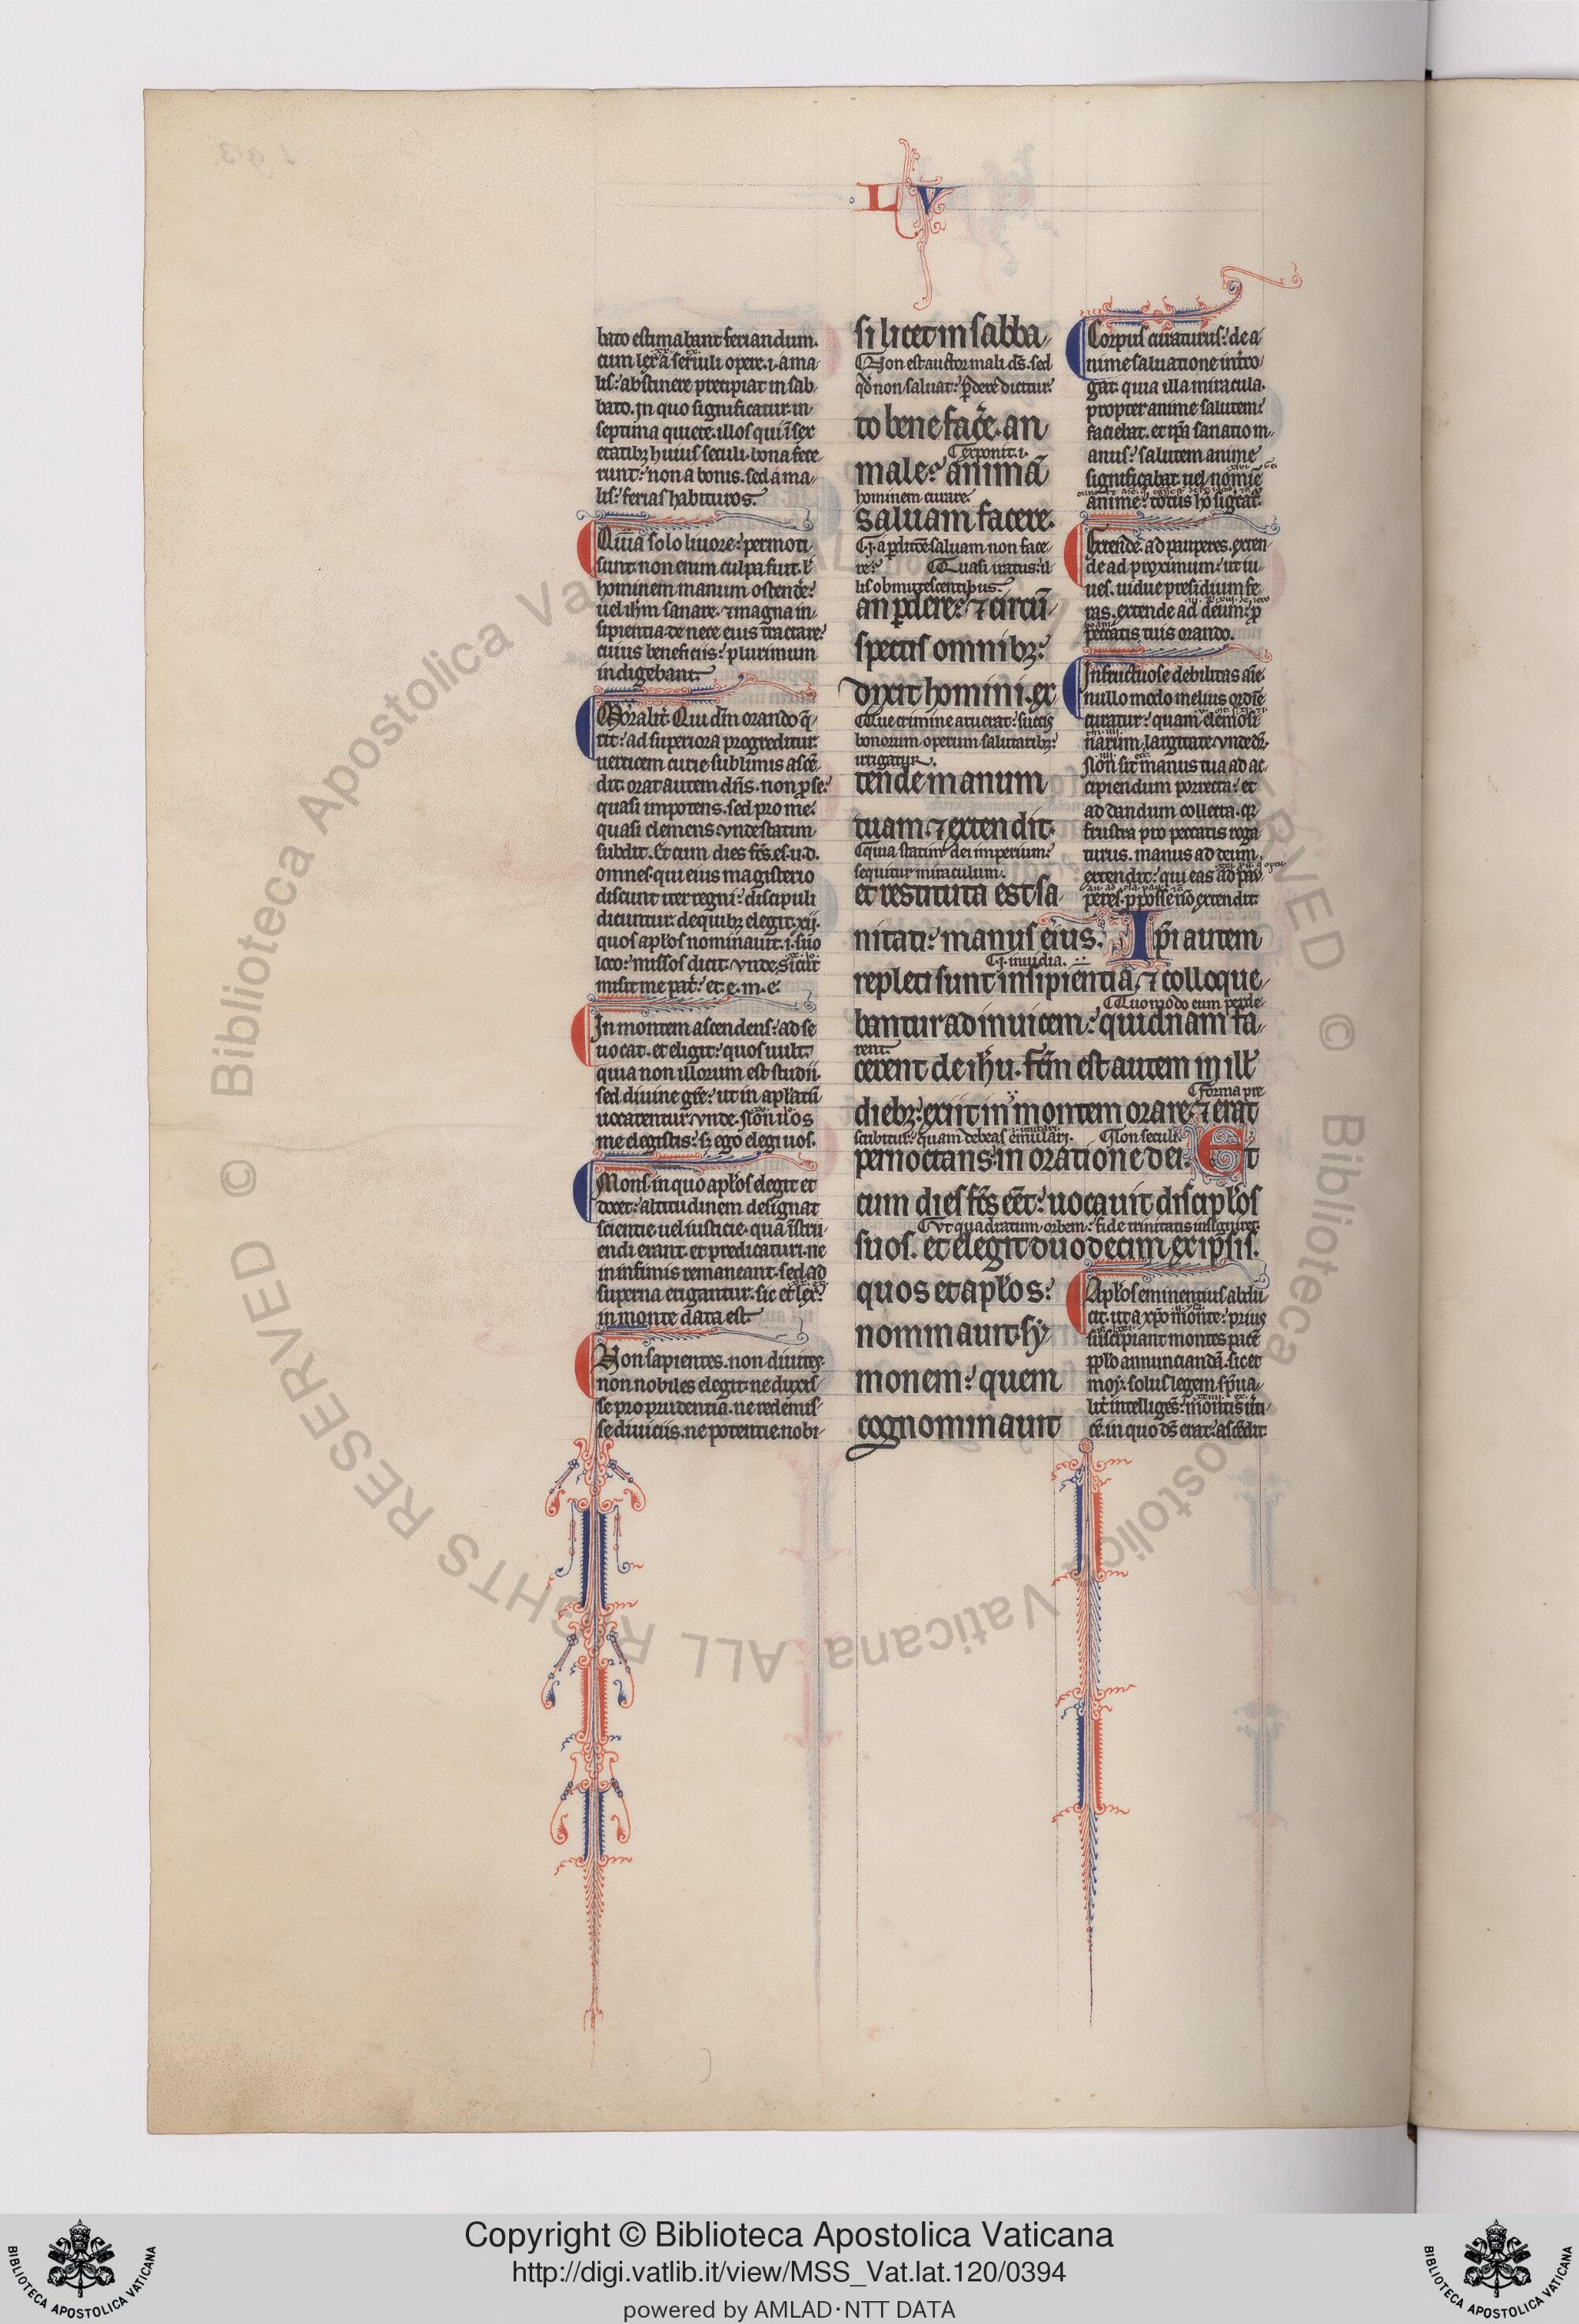 L V
bato estimabant feriandum.
cum lex a seruili opere .i. a ma-
lis: abstinere precipiat in sab-
bato. In quo significatur in
septima quiete. illos qui i sex
etatibz huius seculi. bona fece-
runt: non a bonis. sed a ma-
lis: ferias habituros.
Quia solo liuore: permoti
sunt. non enim culpa fuit. ł
hominem manum ostende:
uel ihm sanare. ⁊ magna in-
sipientia de nece eius tractare:
cuius beneficiis: plurimum
indigebant.
Moralit. Qui dm orando q̄-
rit: ad superiora progreditur.
uerticem curie sublimis ascē-
dit. orat autem dn̄s. non ꝓ se:
quasi impotens. sed pro me:
quasi clemens. vnde statim
subdit. Et cum dies fc̄s. es. u. d.
omnes qui eius magisterio
discunt iter regni: discipuli
dicuntur. de quibz elegit .xij.
quos apłos nominauit .i. suo
loco: missos dicit. vnde. sicut
misit me pat̄: et. e. m. e.
In montem ascendens: ad se
uocat. et eligit: quos uult.
quia non illorum est studii.
sed diuine gr̄e: ut in apłatū
uocarentur. vnde. Non uos
me elegistis: s; ego elegi uos.
Mons. in quo apłos elegit et
docet: altitudinem designat
scientie uel iusticie. qua īstru-
endi erant. et predicaturi. ne
in infimis remaneant. sed ad
superna erigantur. sic et lex:
in monte data est.
Non sapientes. non diuites.
non nobiles elegit. ne duxis-
se pro prudentia. ne redemis-
se diuiciis. ne potentie. nobi-
si licet in sabba-
Non est auctor mali ds̄. sed
qd non saluat: ꝑdere dicitur.
to bene facere. an
exponit .i.
male: animā
hominem curare.
saluam facere.
.i. a ꝑditōe. saluam non face-
re: Quasi iratus: il-
lis obmutescentibus.
an ꝑdere: ⁊ circū-
spectis omnibz:
dixit homini. ex
Que crimine aruerat: succis
bonorum operum salutaribz:
irrigatur.
tende manum
tuam. ⁊ extendit.
quia statim dei imperium:
sequitur miraculum.
et restituta est sa-
nitati: manus eius. Ipi autem
.i. inuidia.
repleti sunt insipientia. ⁊ colloque-
Quomodo eum perde-
bantur ad inuicem: quidnam fa-
rent.
cerent de ihu. Fcm̄ est autem in ill'
forma pre-
diebz: exiit in montem orare. ⁊ erat
scribitur: quam debeas emulari. Non seculi.
pernoctans: in oratione dei. Et
cum dies fc̄s eēt: uocauit discipłos
Vt quadratum orbem: fide trinitatis insigniret.
suos. et elegit duodecim ex ipsis.
quos et apłos:
nominauit. sy-
monem: quem
cognominauit
Corpus curaturus: de a-
nime saluatione intro-
gat. quia illa miracula.
propter anime salutem:
faciebat. et ipa sanatio m-
anus: salutem anime
significabat. uel nomīe
anime: totus hō
Extende. ad pauperes. exten-
de ad proximum: ut iu-
ues. uidue presidium fe-
ras. extende ad deum: ꝓ
peccatis tuis orando.
Infructuose debilitas aīe
nullo modo melius ordīe
curatur: quam elemosi-
narum largitate. vnde dr̄.
Non sit manus tua ad ac-
cipiendum porrecta: et
ad dandum collecta. qr
frustra pro peccatis roga-
turus. manus ad deum
extendit: qui eas ad pau-
peres. ꝓ posse nō extendit.
Apłos eminentius abdu-
cit. ut a xp̄o monte: prius
suscipiant montes pacē
ppło annunciandā. sic et
moy. solus legem spūa-
lit̄ intelliges: montis uti-
cē. in quo ds̄ erat: ascēdit.
Copyright © Biblioteca Apostolica Vaticana
http://digi.vatlib.it/view/MSS_Vat.lat.120/0394
powered by AMLAD·NTT DATA
© Biblioteca Apostolica Vaticana ALL RIGHTS RESERVED
BIBLIOTECA APOSTOLICA VATICANA
BIBLIOTECA APOSTOLICA VATICANA